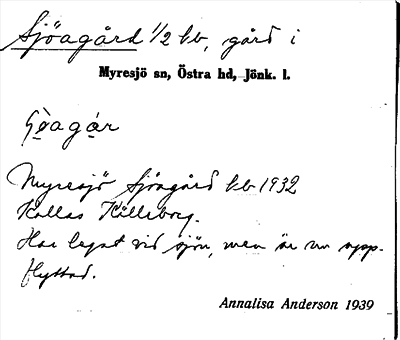 Sjöagård 1/2 kb, gård i
Myresjö sn, Östra hd, Jönk. l.
Myresjö Sjöagård kb 1932
Kallas Källeborg.
Har legat vid sjön, men är nu upp-
flyttad.
Annalisa Anderson 1939